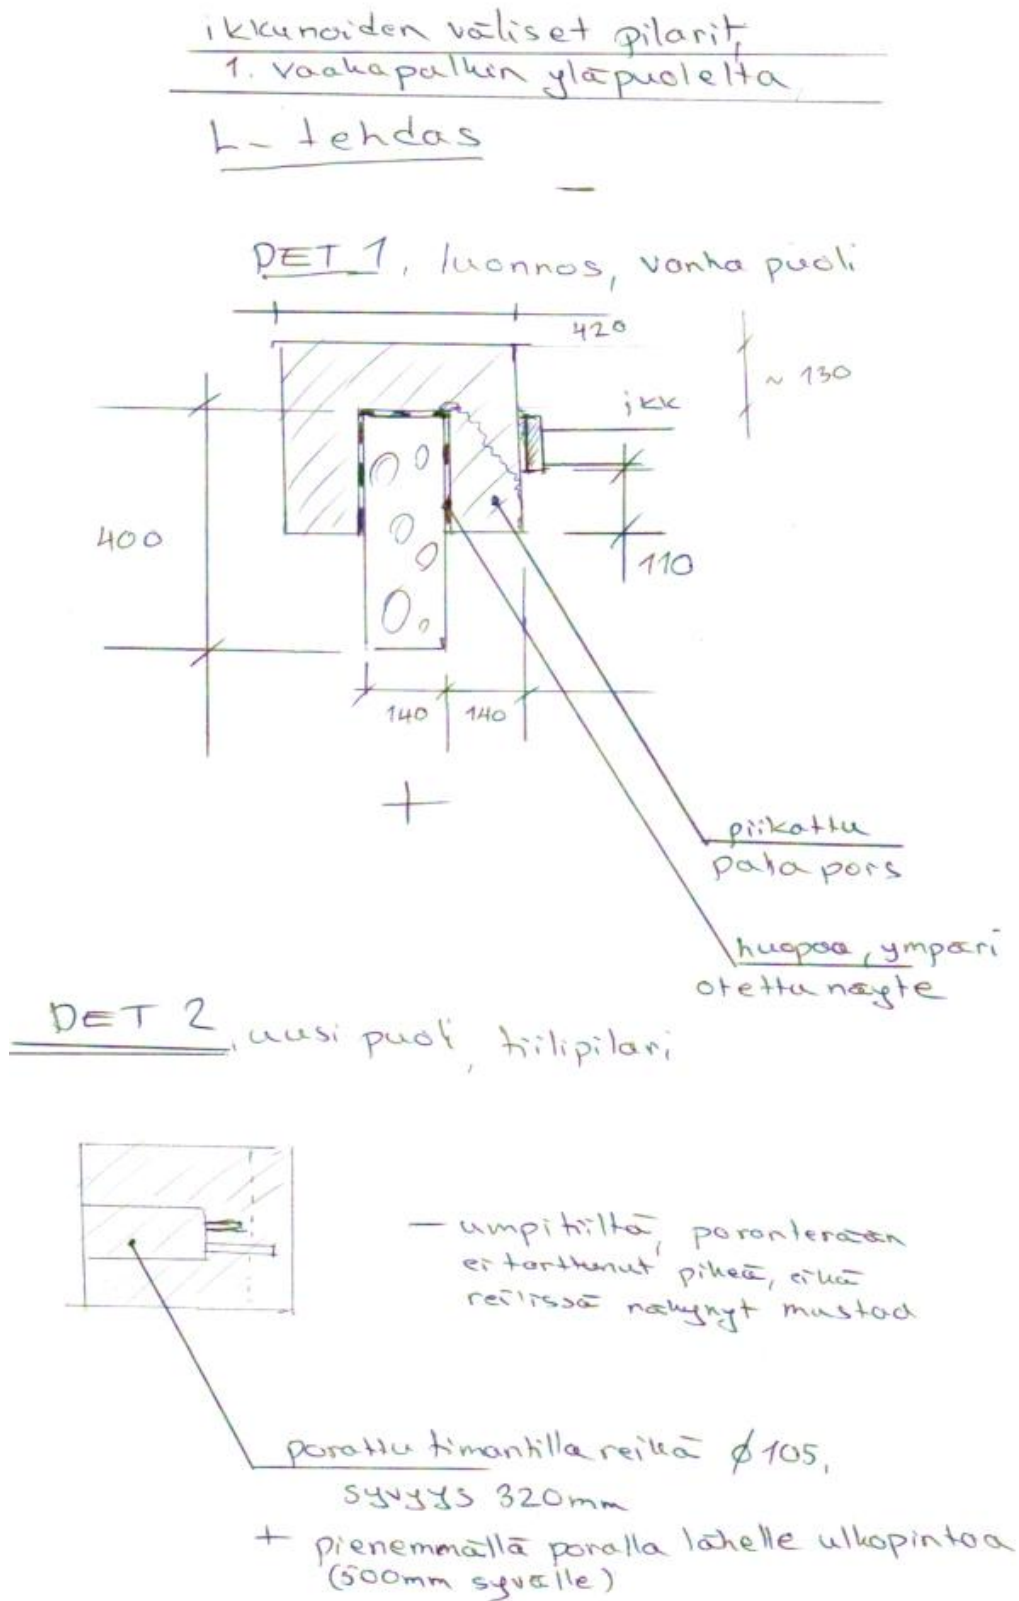 ikkunoiden väliset pilarit,
1. vaakapalkin yläpuolelta
L-tehdas
DET 1, luonnos, vanha puoli
420
~ 130
ikk
400
110
140
140
piikattu
pala pois
huopaa, ympäri
otettu näyte
DET 2, uusi puoli, tiilipilari
- umpitiiltä, poranterään
ei tarttunut pikeä, eikä
reiässä näkynyt mustaa
porattu timantilla reikä ø 105,
syvyys 320mm
+ pienemmällä poralla lähelle ulkopintaa
(500mm syvälle)